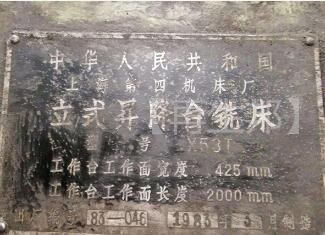 中华人民共和国
上海第四机床厂
立式升降台铣床
型号 X53T
工作台工作面宽度 425 mm
工作台工作面长度 2000 mm
出厂编号 83-046 1983年 月制造